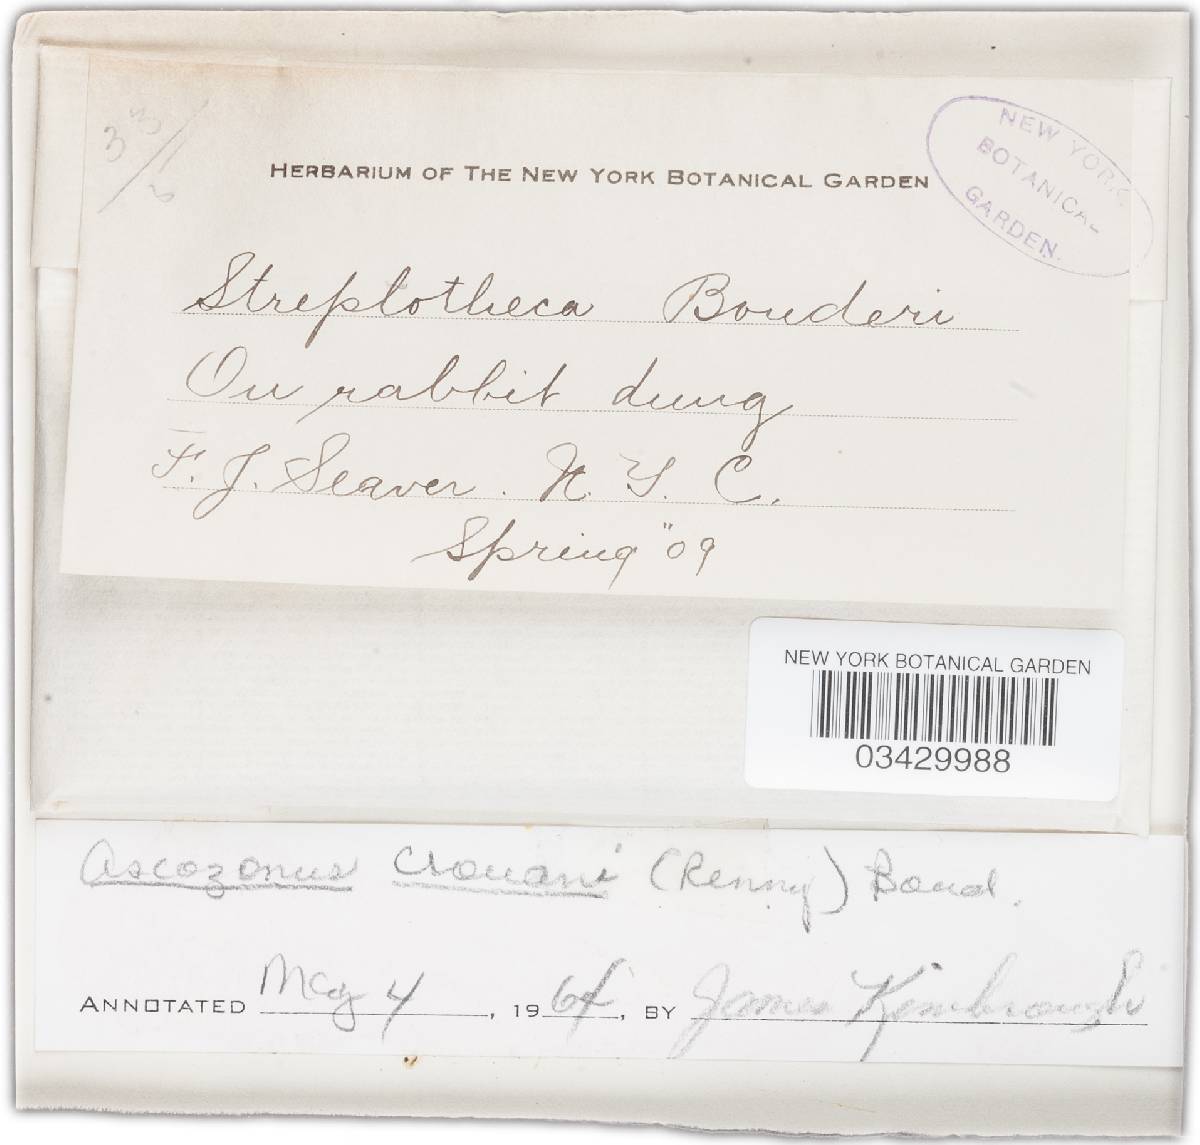 33/6
HERBARIUM OF THE NEW YORK BOTANICAL GARDEN
NEW YORK
BOTANICAL
GARDEN.
Streptotheca Bouderi
On rabbit dung
F. J. Seaver. N. Y. C.
Spring "09
NEW YORK BOTANICAL GARDEN
03429988
Ascozonus crouani (Renny) Boud.
ANNOTATED May 4, 1964, BY James Kimbrough